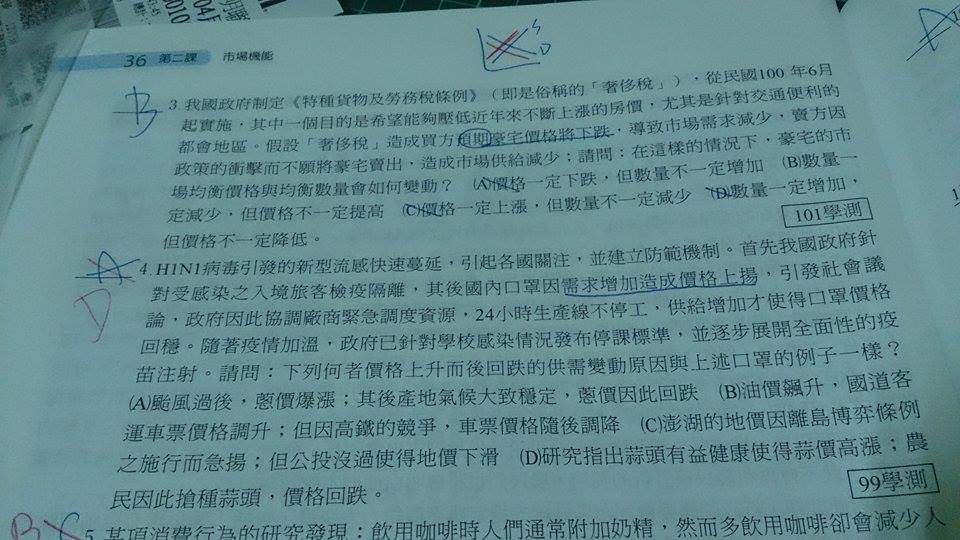 36 第二課 市場機能
S
D
B
3 我國政府制定《特種貨物及勞務稅條例》（即是俗稱的「奢侈稅」），從民國100 年6月
起實施，其中一個目的是希望能夠壓低近年來不斷上漲的房價，尤其是針對交通便利的
都會地區。假設「奢侈稅」造成買方預期豪宅價格將下跌，導致市場需求減少，賣方因
政策的衝擊而不願將豪宅賣出，造成市場供給減少；請問：在這樣的情況下，豪宅的市
場均衡價格與均衡數量會如何變動？ (A)價格一定下跌，但數量不一定增加 (B)數量一
定減少，但價格不一定提高 (C)價格一定上漲，但數量不一定減少 (D)數量一定增加，
但價格不一定降低。
101學測
A
D
4. H1N1病毒引發的新型流感快速蔓延，引起各國關注，並建立防範機制。首先我國政府針
對受感染之入境旅客檢疫隔離，其後國內口罩因需求增加造成價格上揚，引發社會議
論，政府因此協調廠商緊急調度資源，24小時生產線不停工，供給增加才使得口罩價格
回穩。隨著疫情加溫，政府已針對學校感染情況發布停課標準，並逐步展開全面性的疫
苗注射。請問：下列何者價格上升而後回跌的供需變動原因與上述口罩的例子一樣？
(A)颱風過後，蔥價爆漲；其後產地氣候大致穩定，蔥價因此回跌 (B)油價飆升，國道客
運車票價格調升；但因高鐵的競爭，車票價格隨後調降 (C)澎湖的地價因離島博弈條例
之施行而急揚；但公投沒過使得地價下滑 (D)研究指出蒜頭有益健康使得蒜價高漲；農
民因此搶種蒜頭，價格回跌。
99學測
B
5. 某項消費行為的研究發現：飲用咖啡時人們通常附加奶精，然而多飲用咖啡卻會減少人